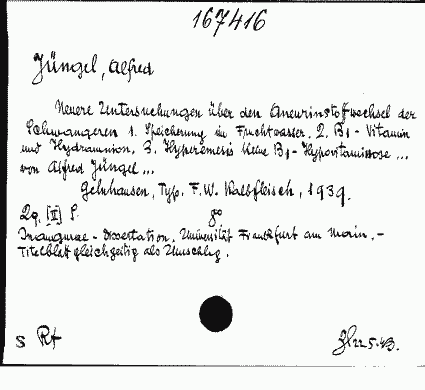 167416
Jüngel, Alfred
Neuere Untersuchungen über den Aneurinstoffwechsel der
Schwangeren 1. Speicherung im Fruchtwasser. 2. B1 - Vitamin
und Hydramnion. 3. Hyperemesis keine B1 - Hypovitaminose ...
von Alfred Jüngel ...
Gelnhausen, Typ. F. W. Kalbfleisch, 1939.
29, [II] S. 8°
Inaugural - Dissertation, Universität Frankfurt am Main. -
Titelblatt gleichzeitig als Umschlag.
S Rt 22.5.43.